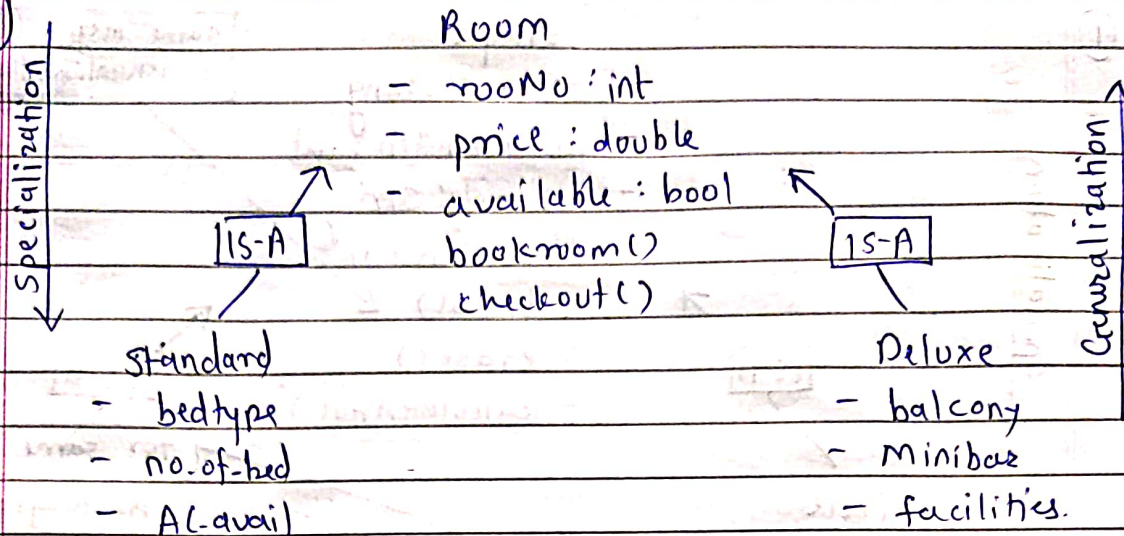 )
Room
- rooNo : int
- price : double
- available : bool
bookroom()
checkout()
Specialization
IS-A
IS-A
Genralization
Standard
- bedtype
- no.of-bed
- AC-avail
Deluxe
- balcony
- Minibar
- facilities.